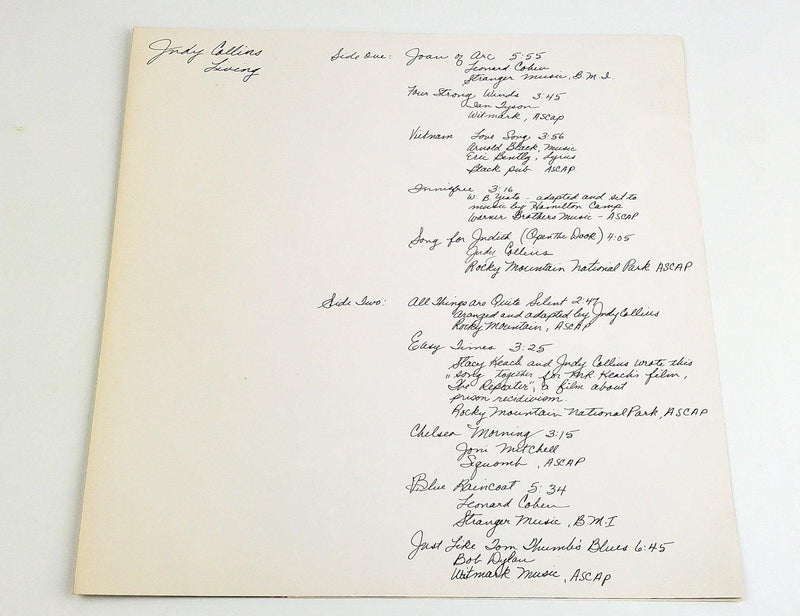 Judy Collins
Living
Side One: Joan of Arc 5:55
Leonard Cohen
Stranger Music, B.M.I.
Four Strong Winds 3:45
Ian Tyson
Witmark, ASCAP
Vietnam Love Song 3:56
Arnold Black, Music
Eric Bently, Lyrics
Black Pub ASCAP
Innisfree 3:16
W. B. Yeats - adapted and set to
music by Hamilton Camp
Warner Brothers Music - ASCAP
Song for Judith (Open the Door) 4:05
Judy Collins
Rocky Mountain National Park ASCAP
Side Two: All Things are Quite Silent 2:47
arranged and adapted by Judy Collins
Rocky Mountain, ASCAP
Easy Times 3:25
Stacy Keach and Judy Collins wrote this
song together for Mr. Keach's film,
"The Repeater", a film about
prison recidivism.
Rocky Mountain National Park, ASCAP
Chelsea Morning 3:15
Joni Mitchell
Siquomb, ASCAP
Blue Raincoat 5:34
Leonard Cohen
Stranger Music, B.M.I
Just Like Tom Thumb's Blues 6:45
Bob Dylan
Witmark Music, ASCAP